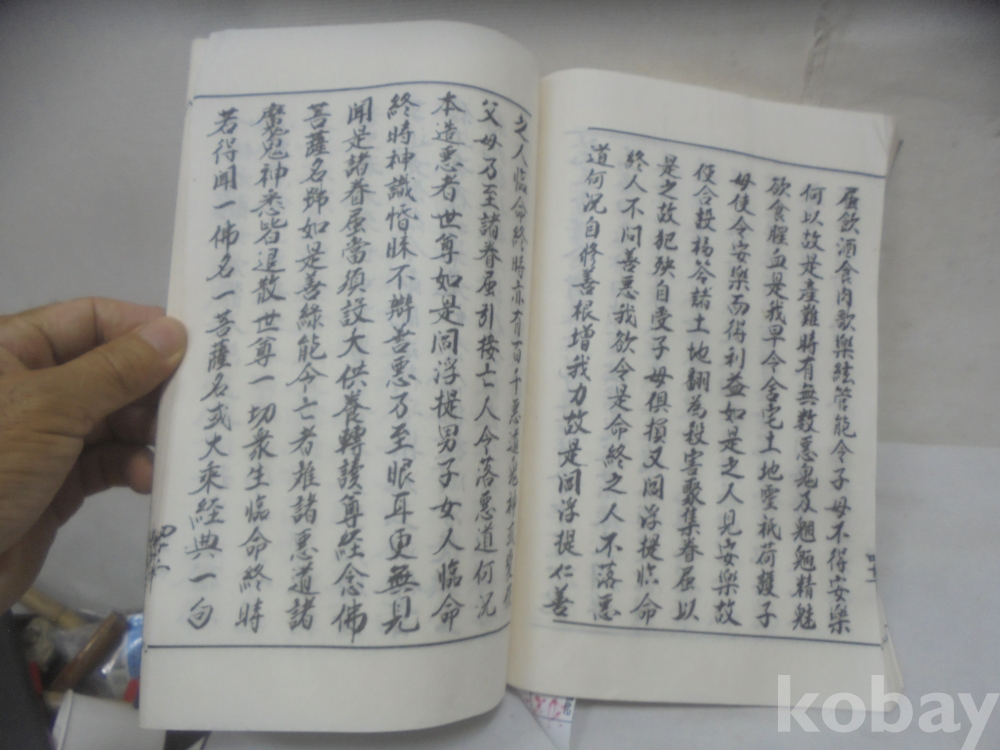 屬飲酒食肉歌樂絃管能令子母不得安樂
何以故是產難時有無數惡鬼及魍魎精魅
欲食腥血是我早令舍宅土地靈祇荷護子
母使令安樂而得利益如是之人見安樂故
便合設福答諸土地翻為殺害聚集眷屬以
是之故犯殃自受子母俱損又閻浮提臨命
終人不問善惡我欲令是命終之人不落惡
道何況自修善根增我力故是閻浮提仁善
之人臨命終時亦有百千惡道鬼神或變
父母乃至諸眷屬引接亡人令落惡道何況
本造惡者世尊如是閻浮提男子女人臨命
終時神識惛昧不辯善惡乃至眼耳更無見
聞是諸眷屬當須設大供養轉讀尊經念佛
菩薩名號如是善緣能令亡者離諸惡道諸
魔鬼神悉皆退散世尊一切衆生臨命終時
若得聞一佛名一菩薩名或大乘經典一句
kobay